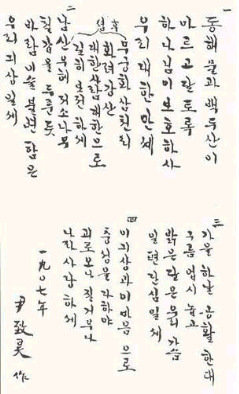 一
동해물과 백두산이
마르고 달토록
하나님이 보호하사
우리 대한 만세
후렴
무궁화 삼천리
화려강산
대한사람 대한으로
길히 보전하세
二
남산 우헤 저 소나무
철갑을 두른 듯
바람 이슬 불변함은
우리 긔상일세
三
가을 하날 공활한대
구름 업시 놉고
밝은 달은 우리 가슴
일편단심일세
四
이 긔상과 이 마음으로
충성을 다하야
괴로오나 질거우나
나라 사랑하세
一九〇七年
尹致昊 作